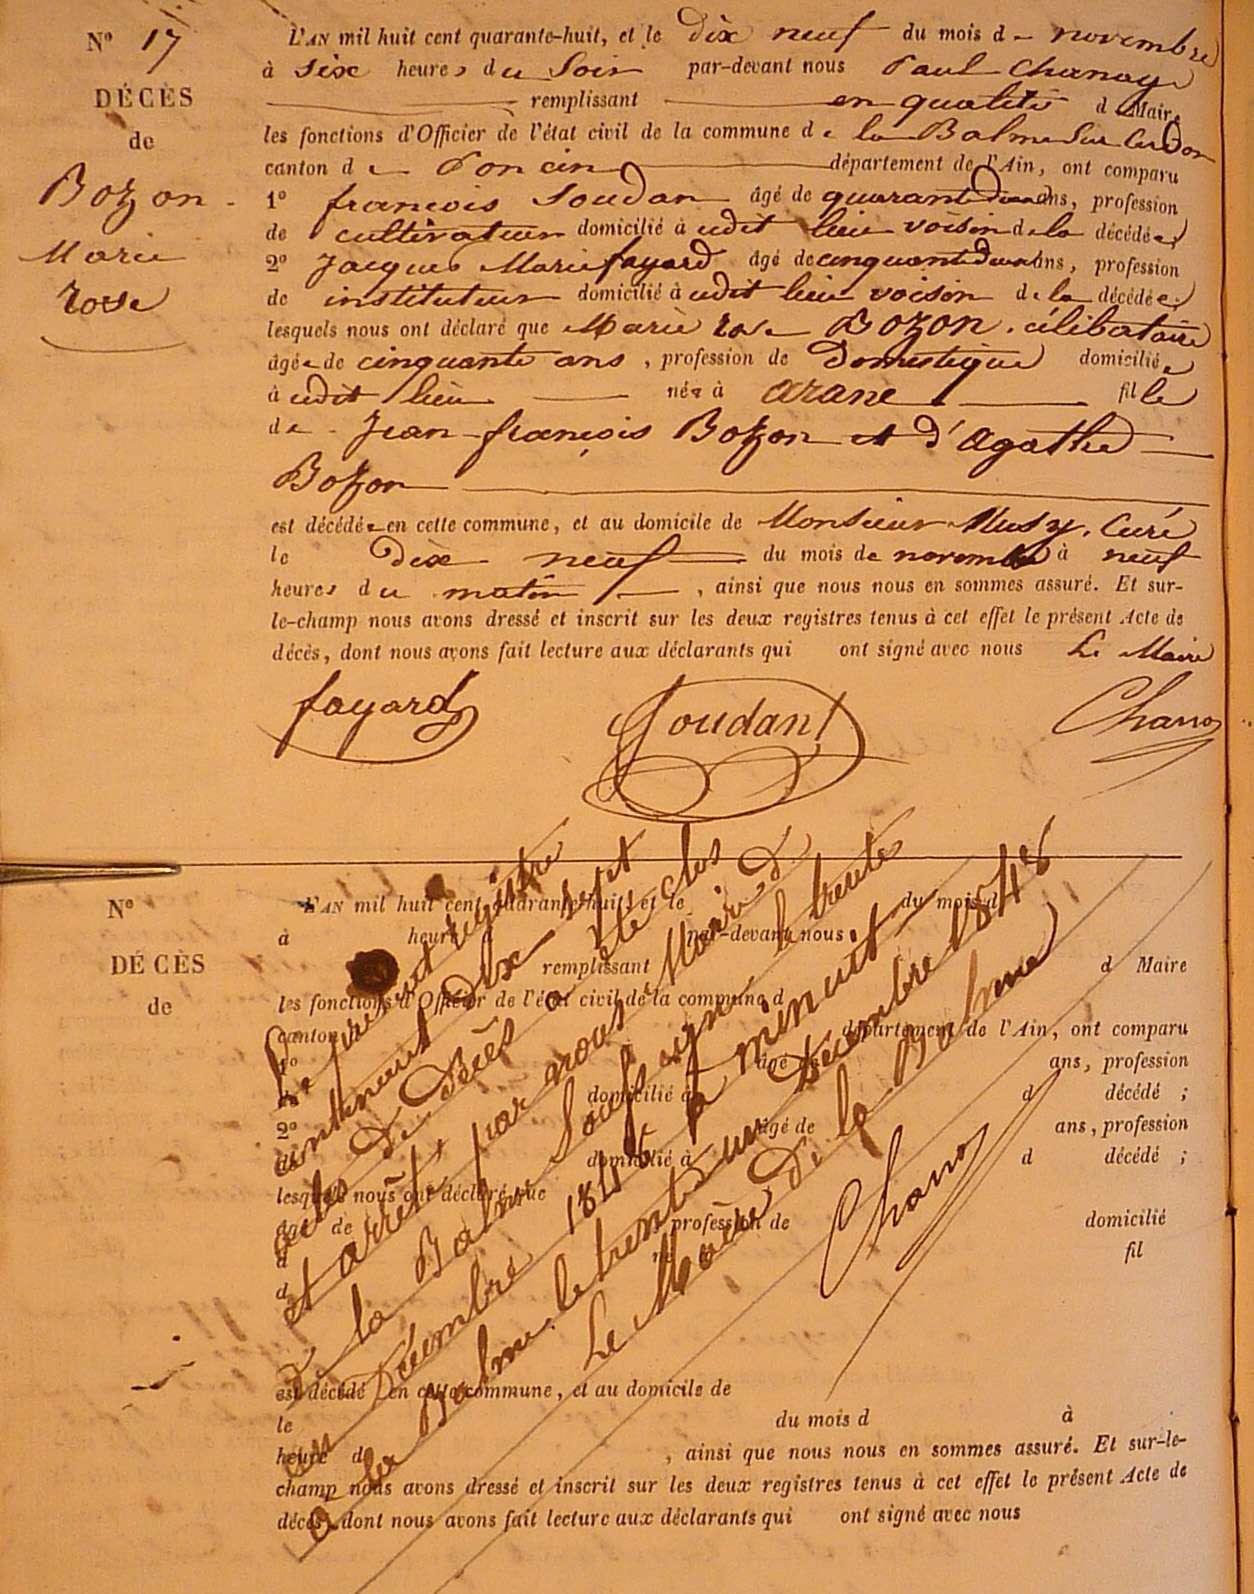 N° 17
DÉCÈS
de
Bozon
Marie
rose
L'AN mil huit cent quarante-huit, et le dix neuf du mois de novembre
à six heures du Soir par-devant nous Paul Chanay
remplissant en qualité d Maire
les fonctions d'Officier de l'état civil de la commune de la Balme Sur Cerdon
canton de Poncin département de l'Ain, ont comparu
1° françois Soudan âgé de quarante deux ans, profession
de cultivateur domicilié à udit lieu voisin de la décédée
2° Jacques Marie fayard âgé de cinquante deux ans, profession
de instituteur domicilié à udit lieu voisin de la décédée
lesquels nous ont déclaré que Marie rose Bozon, célibataire
âgée de cinquante ans, profession de Domestique domiciliée
à udit lieu née à arane fille
de Jean-françois Bozon et d'agathe
Bozon
est décédée en cette commune, et au domicile de Monsieur Musy, Curé
le dix neuf du mois de novembre à neuf
heures du matin, ainsi que nous nous en sommes assuré. Et sur-
le-champ nous avons dressé et inscrit sur les deux registres tenus à cet effet le présent Acte de
décès, dont nous avons fait lecture aux déclarants qui ont signé avec nous Le Maire
fayard Soudant Chanay
N°
DÉCÈS
de
L'AN mil huit cent quarante-huit, et le du mois d
à heure par-devant nous
remplissant d Maire
les fonctions d'Officier de l'état civil de la commune d
canton département de l'Ain, ont comparu
1° âgé de ans, profession
de domicilié à d décédé ;
2° âgé de ans, profession
de domicilié à d décédé ;
lesquels nous ont déclaré que
âgé de profession de domicilié
à né à fil
d
est décédé en cette commune, et au domicile de
le du mois d à
heure d , ainsi que nous nous en sommes assuré. Et sur-le-
champ nous avons dressé et inscrit sur les deux registres tenus à cet effet le présent Acte de
décès, dont nous avons fait lecture aux déclarants qui ont signé avec nous
Le présent registre
contenant dix-sept
actes de Décès a été clos
et arrêté par nous Maire de
la Balme Soussigné le trente
un Décembre 1848 à minuit
à la Balme, le trente un Décembre 1848
Le Maire de la Balme
Chanay